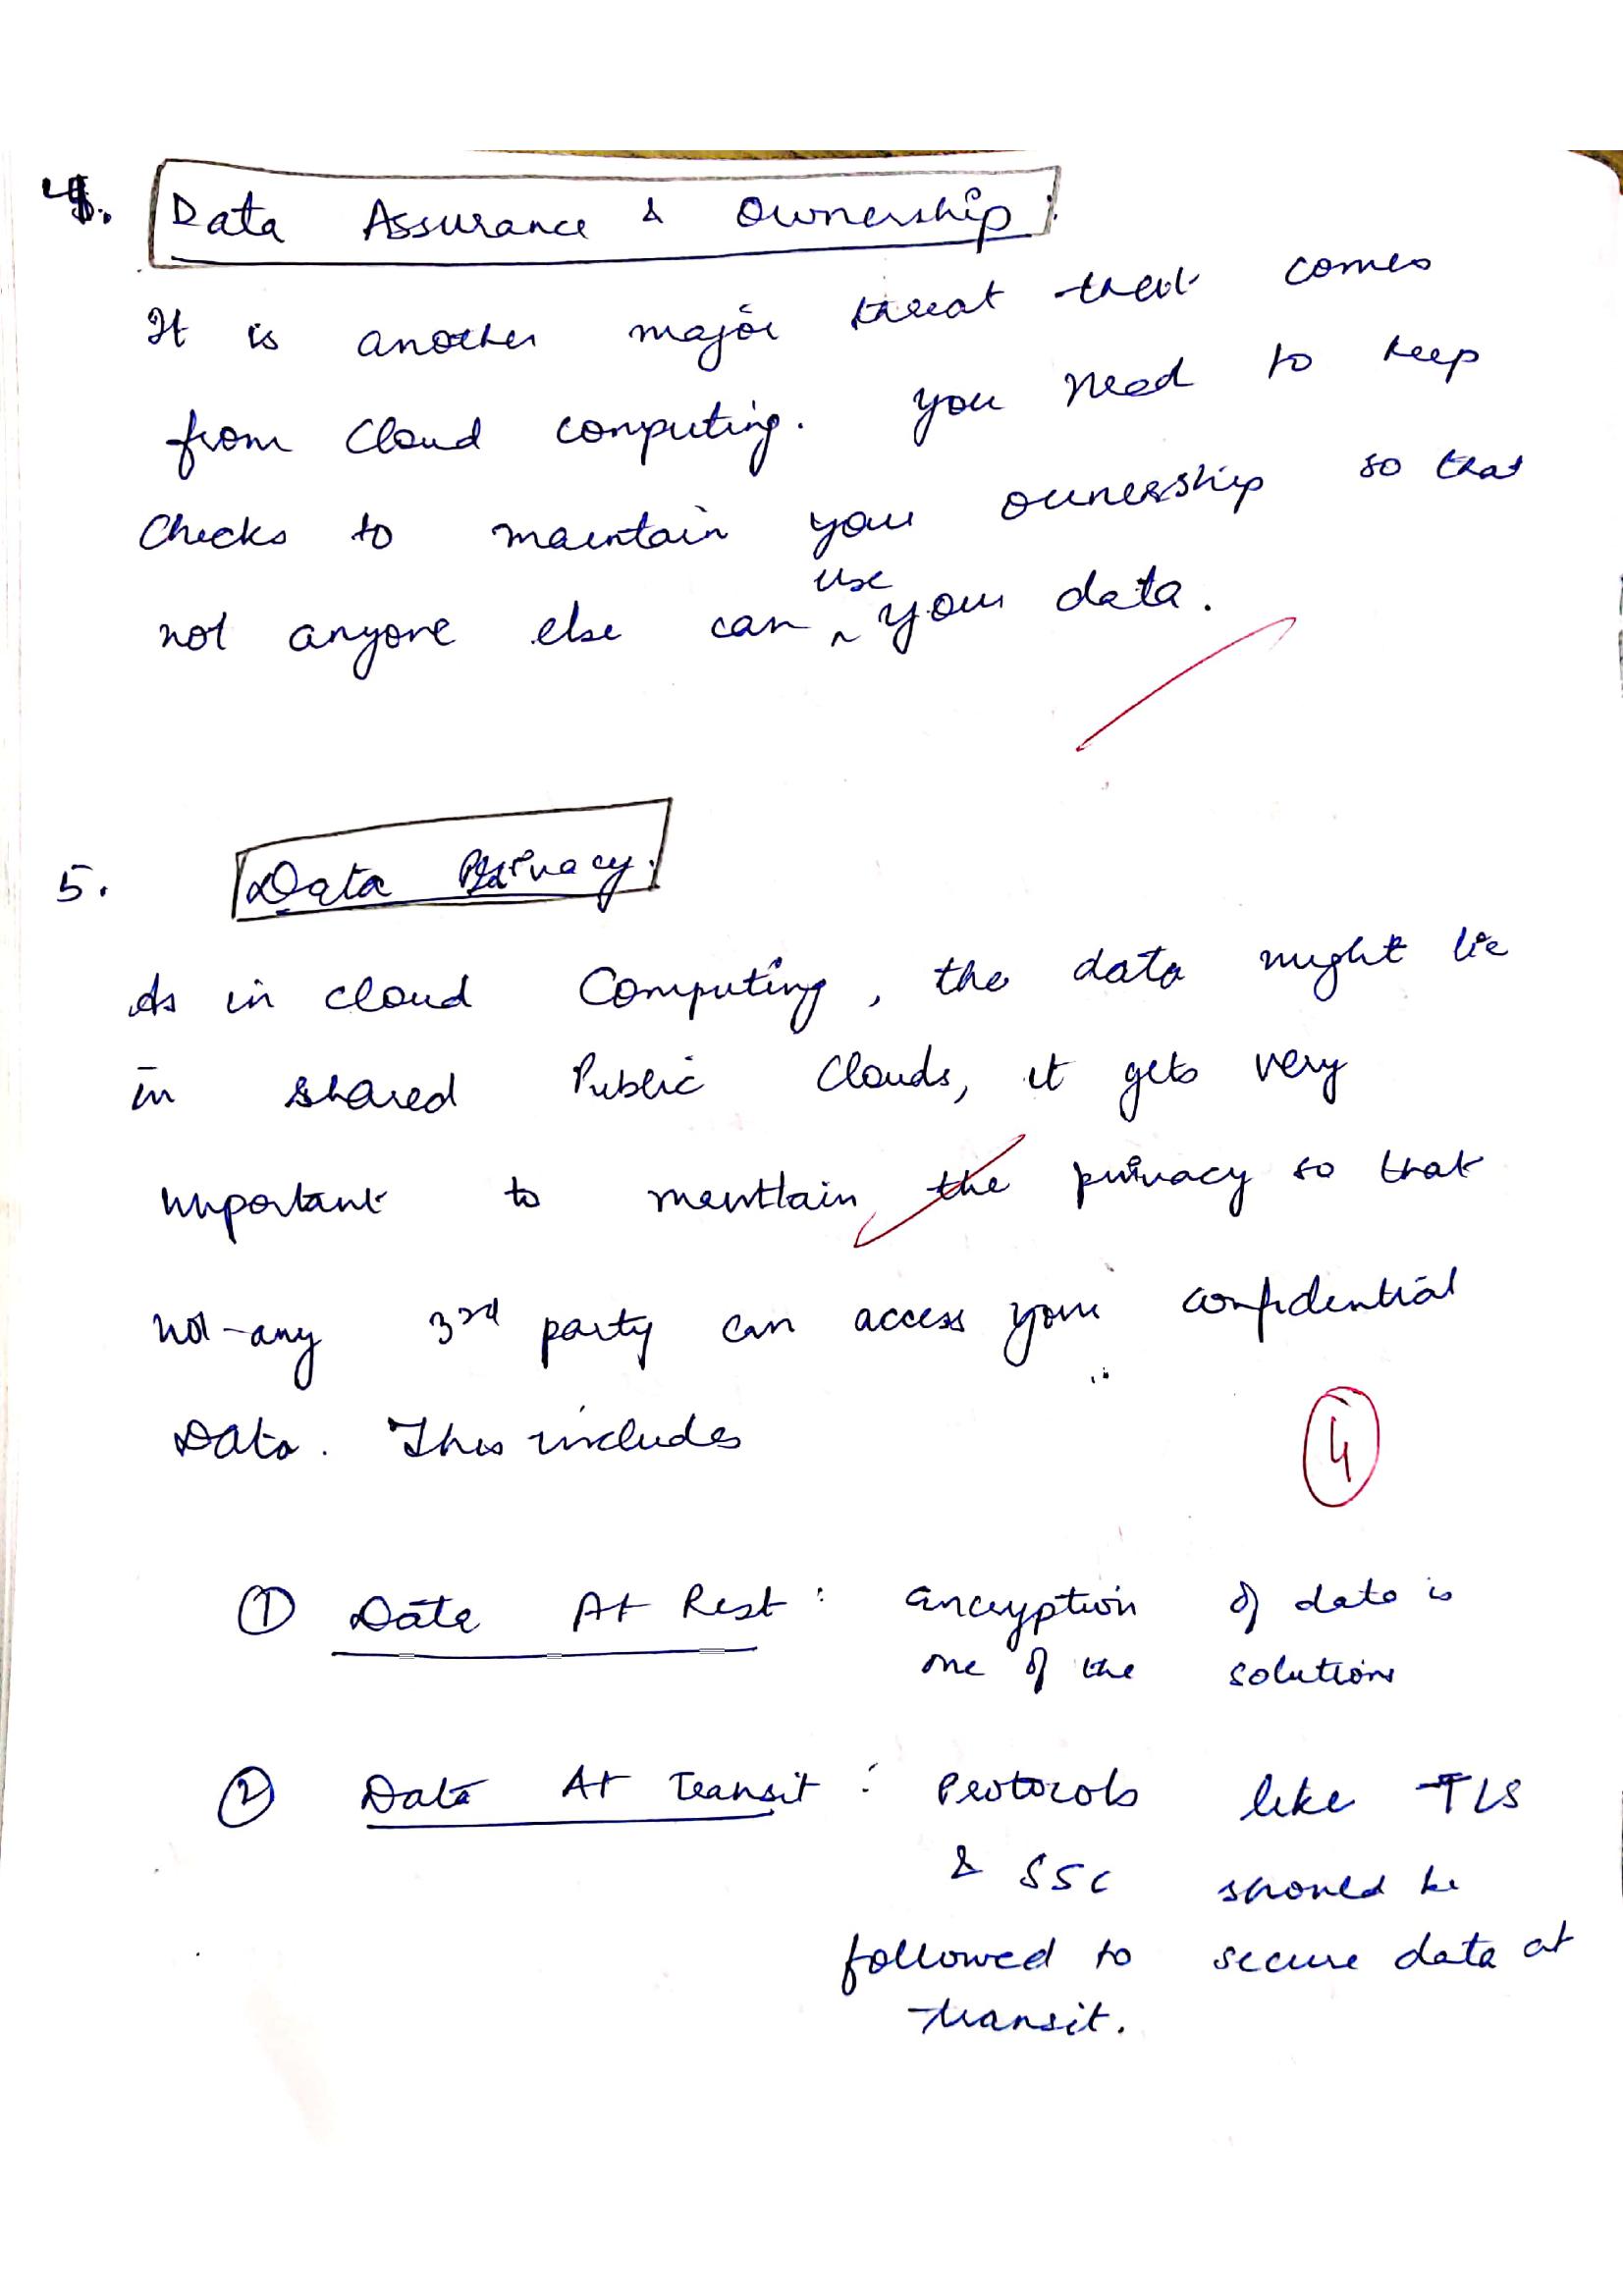 4. Data Assurance & Ownership:
It is another major threat that comes
from Cloud computing. You need to keep
checks to maintain your ownership so that
not anyone else can use your data.
5. Data Privacy:
As in cloud Computing, the data might lie
in shared Public Clouds, it gets very
important to maintain the privacy so that
not-any 3rd party can access your confidential
Data. This includes
4
① Data At Rest: encryption of data is
one of the solutions
② Data At Transit: Protocols like TLS
& SSC should be
followed to secure data at
transit.